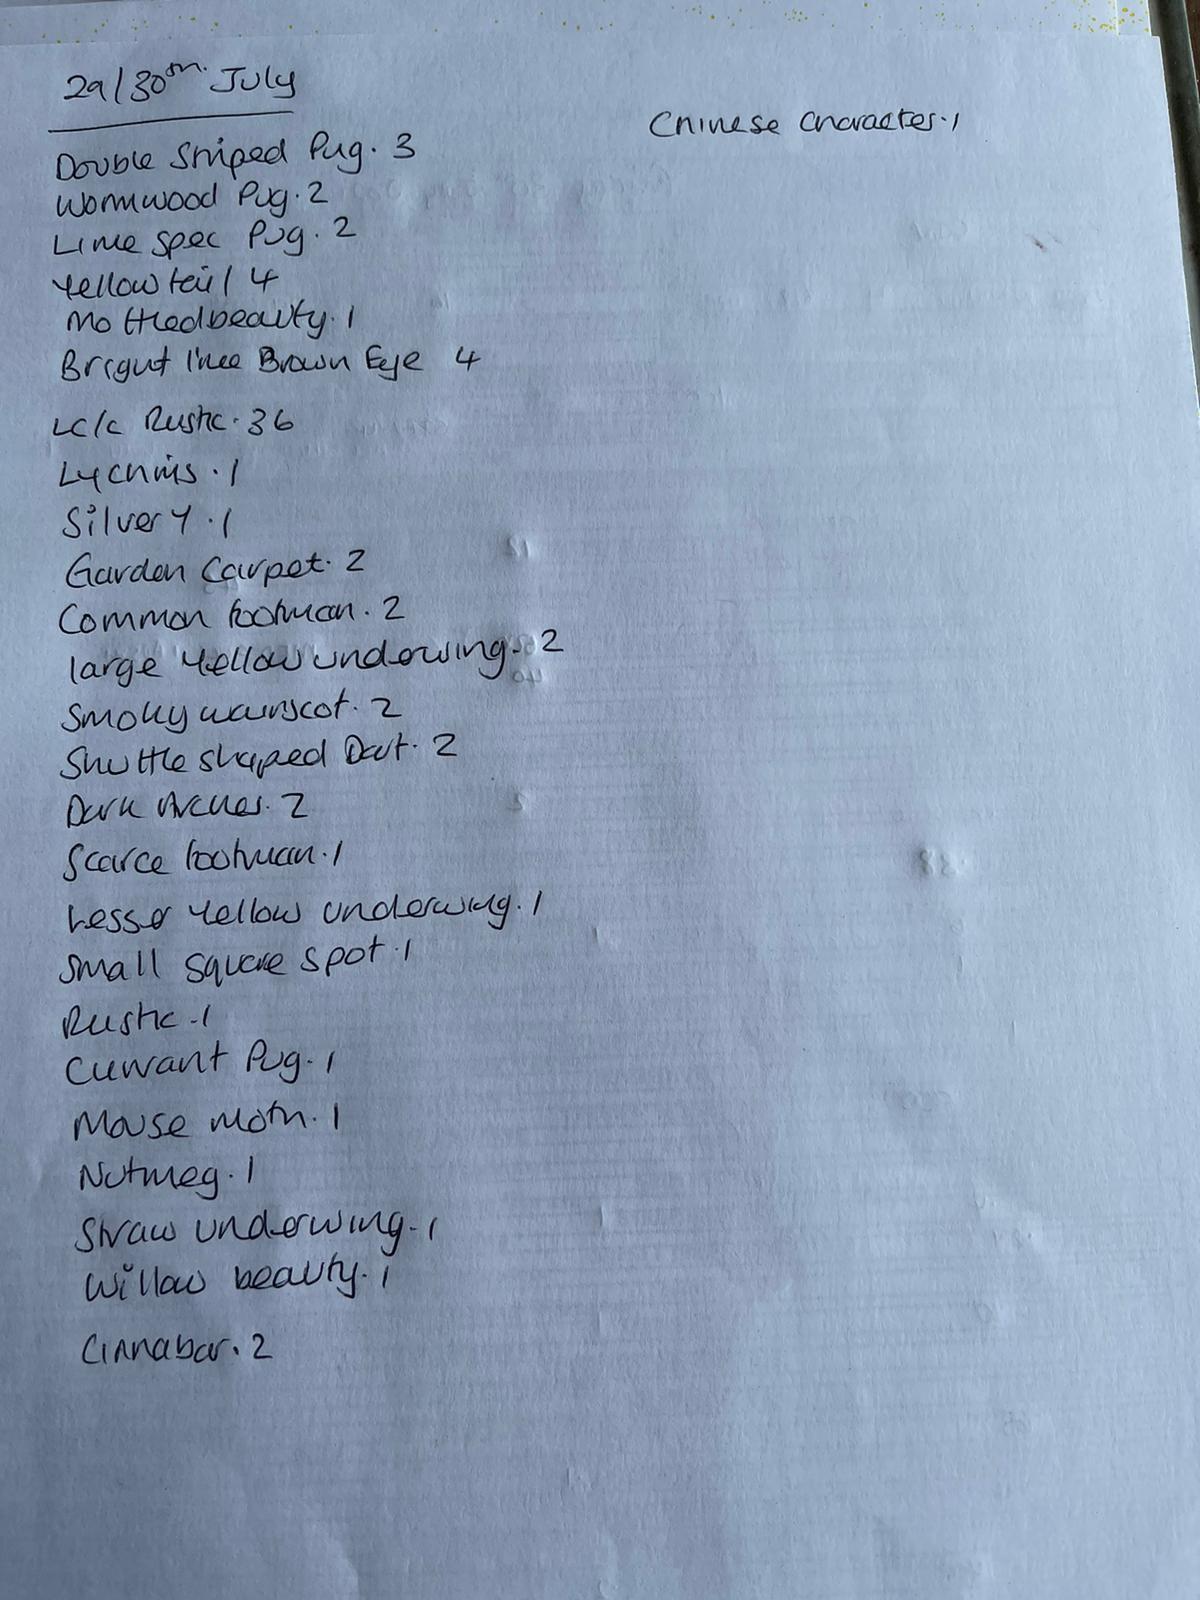 29/30th July
Double Striped Pug. 3
Wormwood Pug. 2
Lime Spec Pug. 2
Yellow tail 4
Mottled beauty. 1
Bright line Brown Eye 4
LC/C Rustic. 36
Lychnis. 1
Silver Y. 1
Garden Carpet. 2
Common footman. 2
large Yellow underwing. 2
Smoky wainscot. 2
Shuttle shaped Dart. 2
Dark Arches. 2
Scarce footman. 1
Lesser Yellow underwing. 1
Small square spot. 1
Rustic. 1
Currant Pug. 1
Mouse moth. 1
Nutmeg. 1
Straw underwing. 1
Willow beauty. 1
Cinnabar. 2
Chinese Character. 1